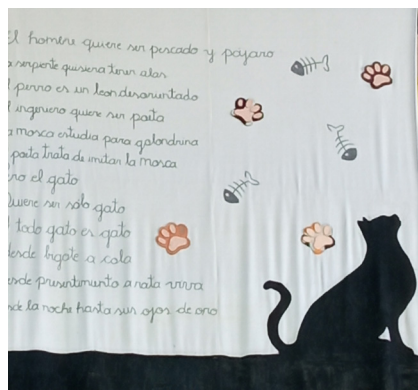 El hombre quiere ser pescado y pajaro
a serpiente quisiera tener alas
l perro es un leon desorientado
l ingeniero quiere ser poeta
a mosca estudia para golondrina
poeta trata de imitar la mosca
ro el gato
Quiere ser sólo gato
todo gato es gato
desde bigote a cola
esde presentimiento a rata viva
sde la noche hasta sus ojos de oro